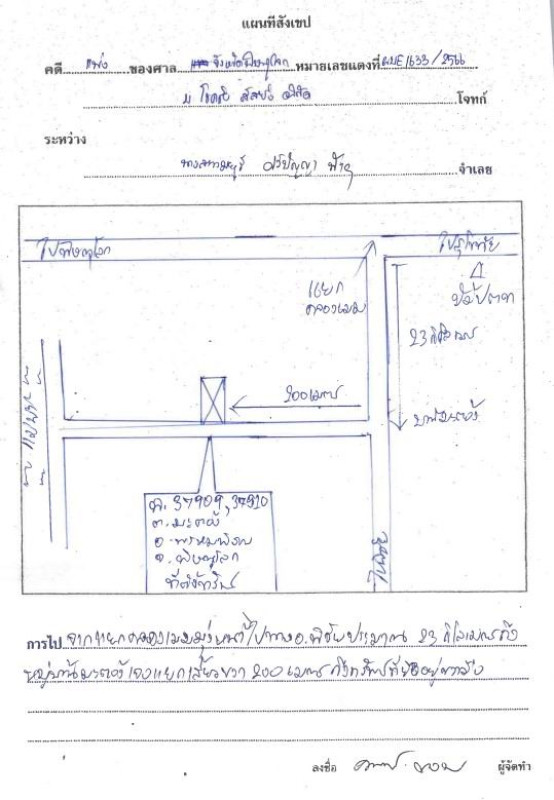 แผนที่สังเขป
คดี แพ่ง ของศาล จังหวัดพิษณุโลก หมายเลขแดงที่ ผบE1633/2566
โจทก์
ระหว่าง
จำเลย
ไปพิษณุโลก
ไปสุโขทัย
แยก
คลองเมม
23 กิโลเมตร
200 เมตร
บ้านมะต้อง
แม่น้ำ
ด. 37909, 37910
ต. มะต้อง
อ. พรหมพิราม
จ. พิษณุโลก
ที่ตั้งทรัพย์
การไป จากแยกคลองเมมมุ่งหน้าไปทาง อ.พิชัย ประมาณ 23 กิโลเมตรถึง
หมู่บ้านมะต้องเจอแยกเลี้ยวขวา 200 เมตร ถึงทรัพย์ที่ยึดอยู่ขวามือ
ลงชื่อ ผู้จัดทำ